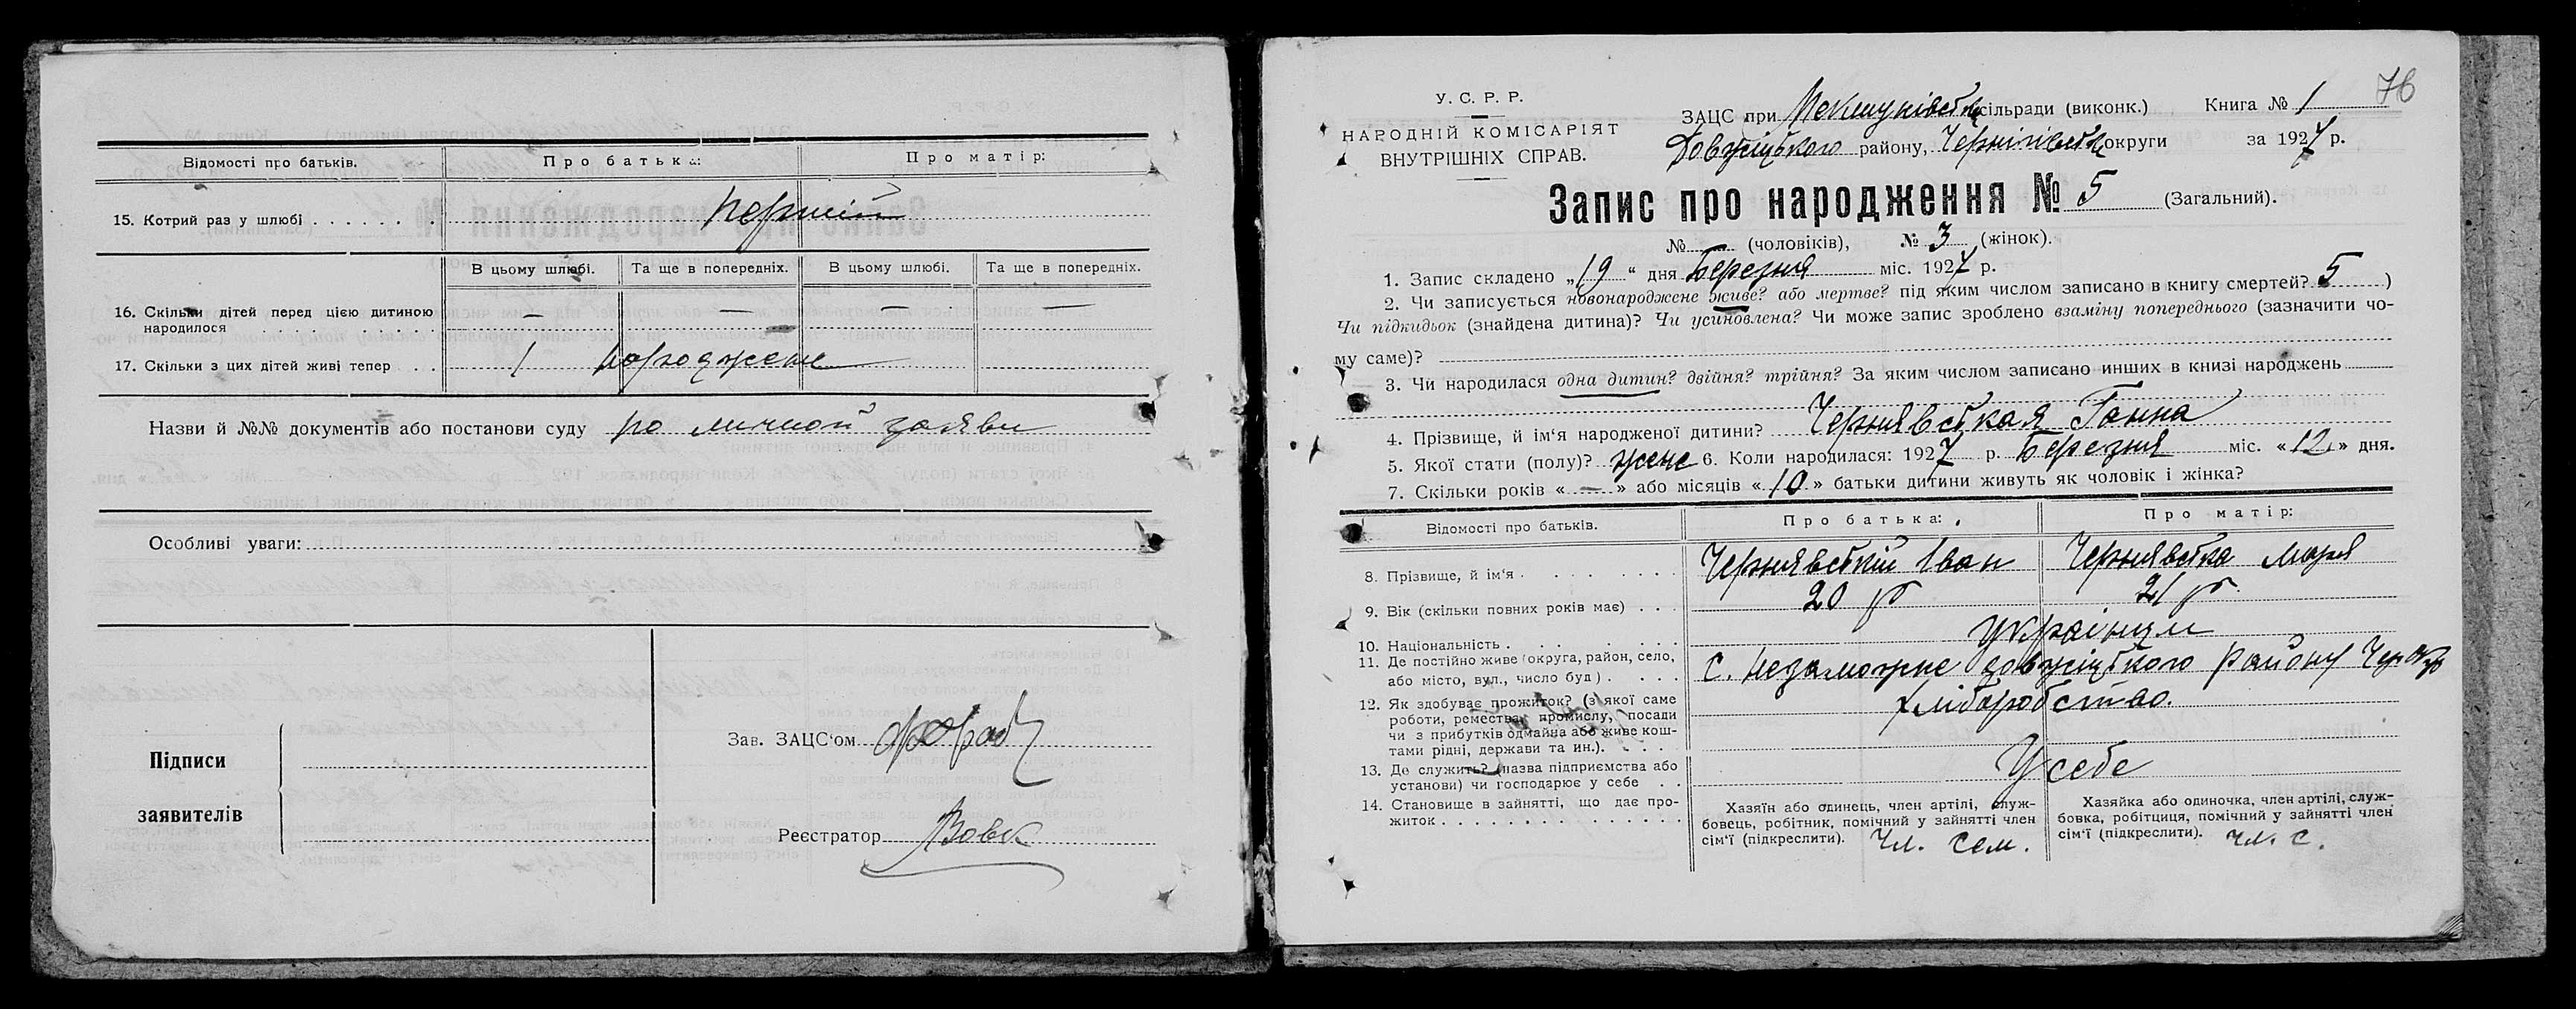 Відомості про батьків.
Про батька:
Про матір:
15. Котрий раз у шлюбі . . . . . . .
перший
В цьому шлюбі.
Та ще в попередніх.
В цьому шлюбі.
Та ще в попередніх.
16. Скільки дітей перед цією дитиною
народилося . . . . . . . . .
— — — —
17. Скільки з цих дітей живі тепер . .
1
Назви й №№ документів або постанови суду по личной заяви
Особливі уваги:
Підписи
заявителів
Зав. ЗАЦС'ом
Реєстратор Вовк
76
У. С. Р. Р.
НАРОДНІЙ КОМІСАРІЯТ
ВНУТРІШНІХ СПРАВ.
ЗАЦС при сільради (виконк.)
Книга № 1
району, округи
за 1927 р.
Запис про народження № 5 (Загальний).
№ (чоловіків), № 3 (жінок).
1. Запис складено „19“ дня Березня міс. 1927 р.
2. Чи записується новонароджене живе? або мертве? під яким числом записано в книгу смертей? 5 )
Чи підкидьок (знайдена дитина)? Чи усиновлена? Чи може запис зроблено взаміну попереднього (зазначити чо-
му саме)?
3. Чи народилася одна дитин? двійня? трійня? За яким числом записано инших в книзі народжень
4. Прізвище, й ім‘я народженої дитини? Чернявская Ганна
5. Якої стати (полу)? жене 6. Коли народилася: 1927 р. Березня міс. «12» дня.
7. Скільки років «—» або місяців «10» батьки дитини живуть як чоловік і жінка?
Відомості про батьків.
Про батька:
Про матір:
8. Прізвище, й ім‘я . . . . . . .
Чернявскій Іван
Чернявска Марія
9. Вік (скільки повних років має) . . .
20 р
21 р.
10. Національність . . . . . . .
Українці
11. Де постійно живе (округа, район, село,
або місто, вул., число буд) . . . .
с. Незаможне Довжіцького району
12. Як здобуває прожиток? (з якої саме
роботи, ремества, промислу, посади
чи з прибутків одмайна або живе кош-
тами рідні, держави та ин.). . . . .
хліборобство.
13. Де служить? (назва підприємства або
установи) чи господарює у себе . .
У себе
14. Становище в зайнятті, що дає про-
житок . . . . . . . . . . . . . .
Хазяїн або одинець, член артілі, служ-
бовець, робітник, помічний у зайнятті член
сім‘ї (підкреслити). Чл. сем.
Хазяйка або одиночка, член артілі, служ-
бовка, робітциця, помічний у зайнятті член
сім‘ї (підкреслити). чл. с.